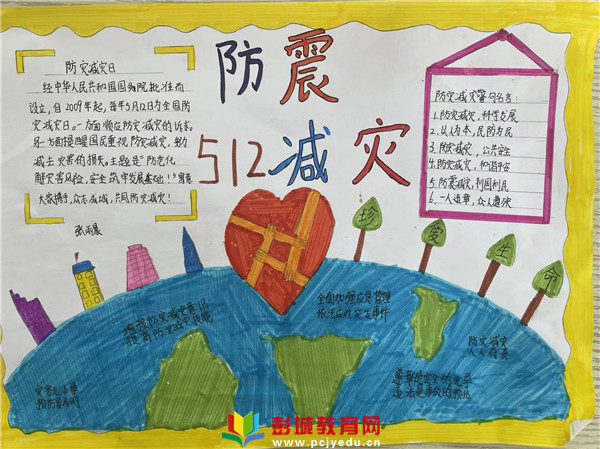 防震
512减灾
防灾减灾日
经中华人民共和国国务院批准而
设立,自2009年起,每年5月12日为全国防
灾减灾日。一方面顺应防灾减灾的诉求
另一方面提醒国民重视防灾减灾,努
力减土灾害的损失。主题是"防范化
解灾害风险,安全筑牢发展基础!"需要
大家携手,众志成城,共同防灾减灾!
防灾减灾警句名言:
1.防灾减灾,科学发展
2.以人为本,民防为民
3.防灾减灾,公共安全
4.防灾减灾,和谐平安
5.防震减灾,利国利民
6.一人违章,众人遭殃
珍爱生命
增强防灾减灾意识
提高防灾减灾技能
全面加强应急管理
依法应对突发事件
防灾减灾
人人有责
遵章是安全的先导
违法是事故的预兆
彭城教育网
www.pcjyedu.cn